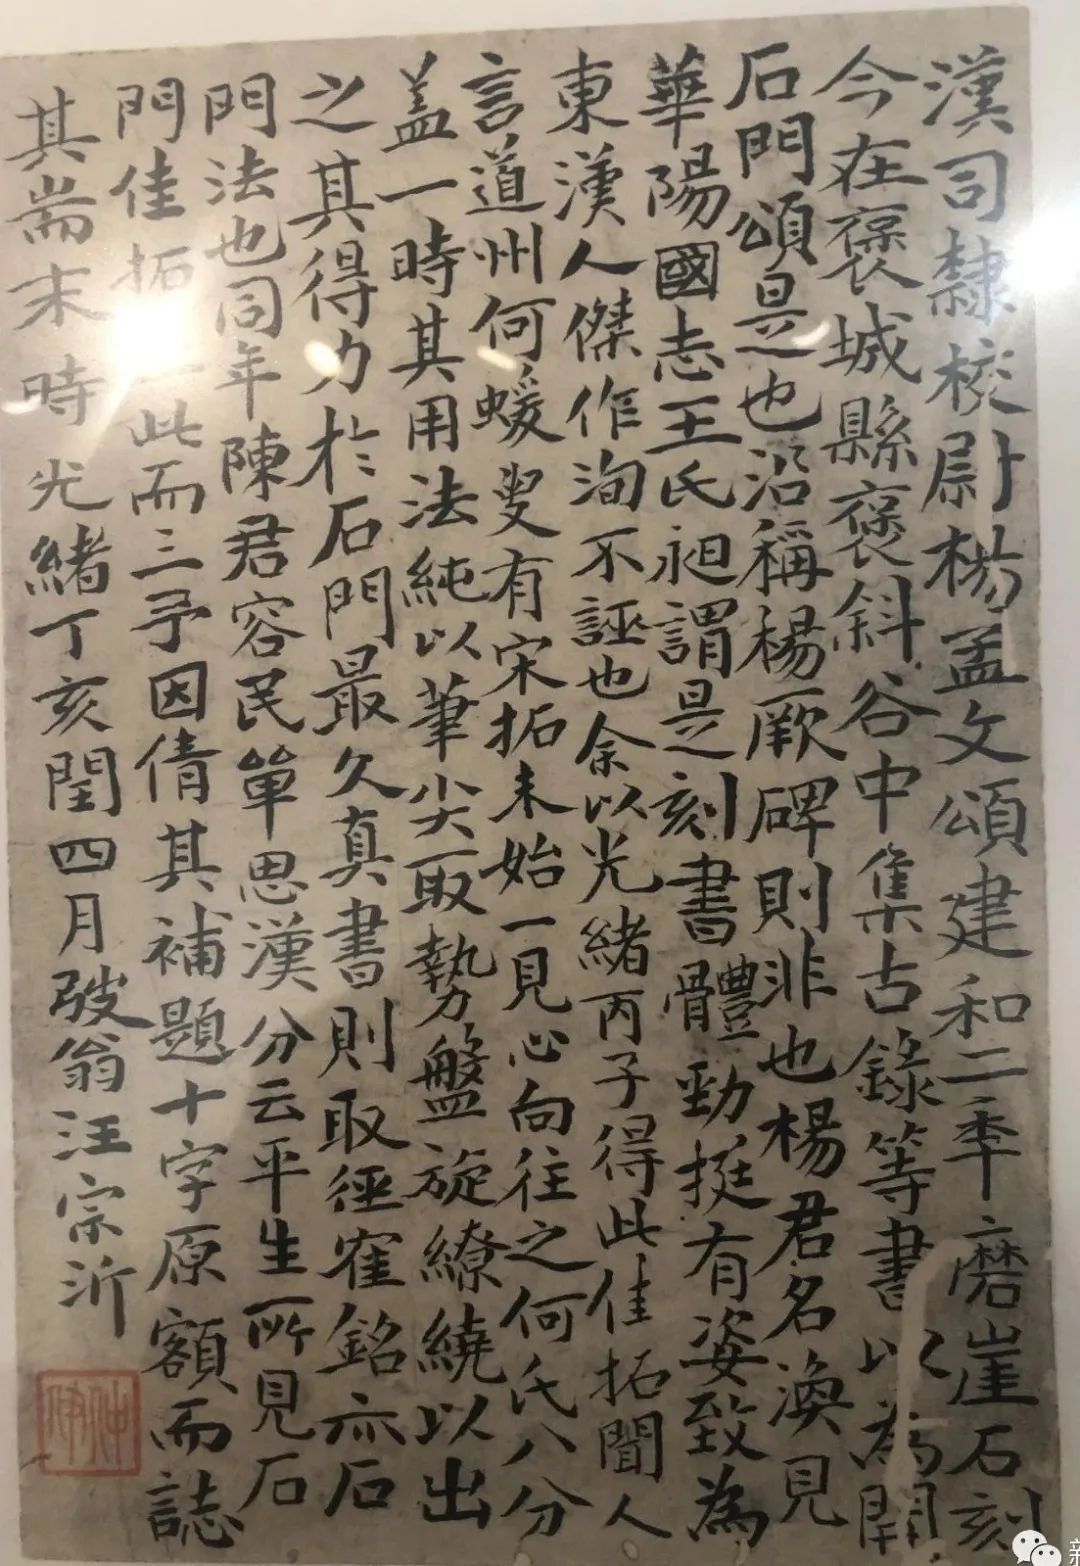 漢司隸校尉楊孟文頌建和二年磨崖石刻
今在褒城縣褒斜谷中集古錄等書以為開
石門頌是也沿稱楊厥碑則非也楊君名渙見
華陽國志王氏昶謂是刻書體勁挺有姿致為
東漢人傑作洵不誣也余以光緒丙子得此佳拓聞人
言道州何蝯叟有宋拓未始一見心向往之何氏八分
蓋一時其用法純以筆尖取勢盤旋繚繞以出
之其得力於石門最久真書則取徑寉銘亦石
門法也同年陳君容民單思漢分云平生所見石
門佳拓此而三予因倩其補題十字原額而誌
其耑末時光緒丁亥閏四月弢翁汪宗沂